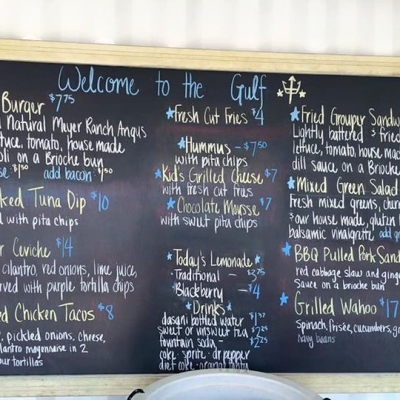 Welcome to the Gulf
Burger $7.75
Natural Meyer Ranch Angus
lettuce, tomato, house made
on a Brioche bun
$1.50 add bacon $1.50
Tuna Dip $10
with pita chips
Ceviche $14
cilantro, red onions, lime juice,
served with purple tortilla chips
Chicken Tacos $8
pickled onions, cheese,
mayonnaise in 2
tortillas
Fresh Cut Fries $4
Hummus - $7.50
with pita chips
Kid's Grilled Cheese $7
with fresh cut fries
Chocolate Mousse $7
with sweet pita chips
Today's Lemonade
Traditional - $3.75
Blackberry - $4
Drinks
dasani bottled water
sweet or unsweet tea
fountain soda -
coke sprite dr pepper
diet coke
Fried Grouper Sandw
Lightly battered & fried
lettuce, tomato, house mad
dill sauce on a Brioche
Mixed Green Salad
Fresh mixed greens, cher
& our house made, gluten f
balsamic vinaigrette add
BBQ Pulled Pork Sand
red cabbage slaw and ginger
sauce on a brioche bun
Grilled Wahoo $17
spinach, frisée, cucumbers,
navy beans